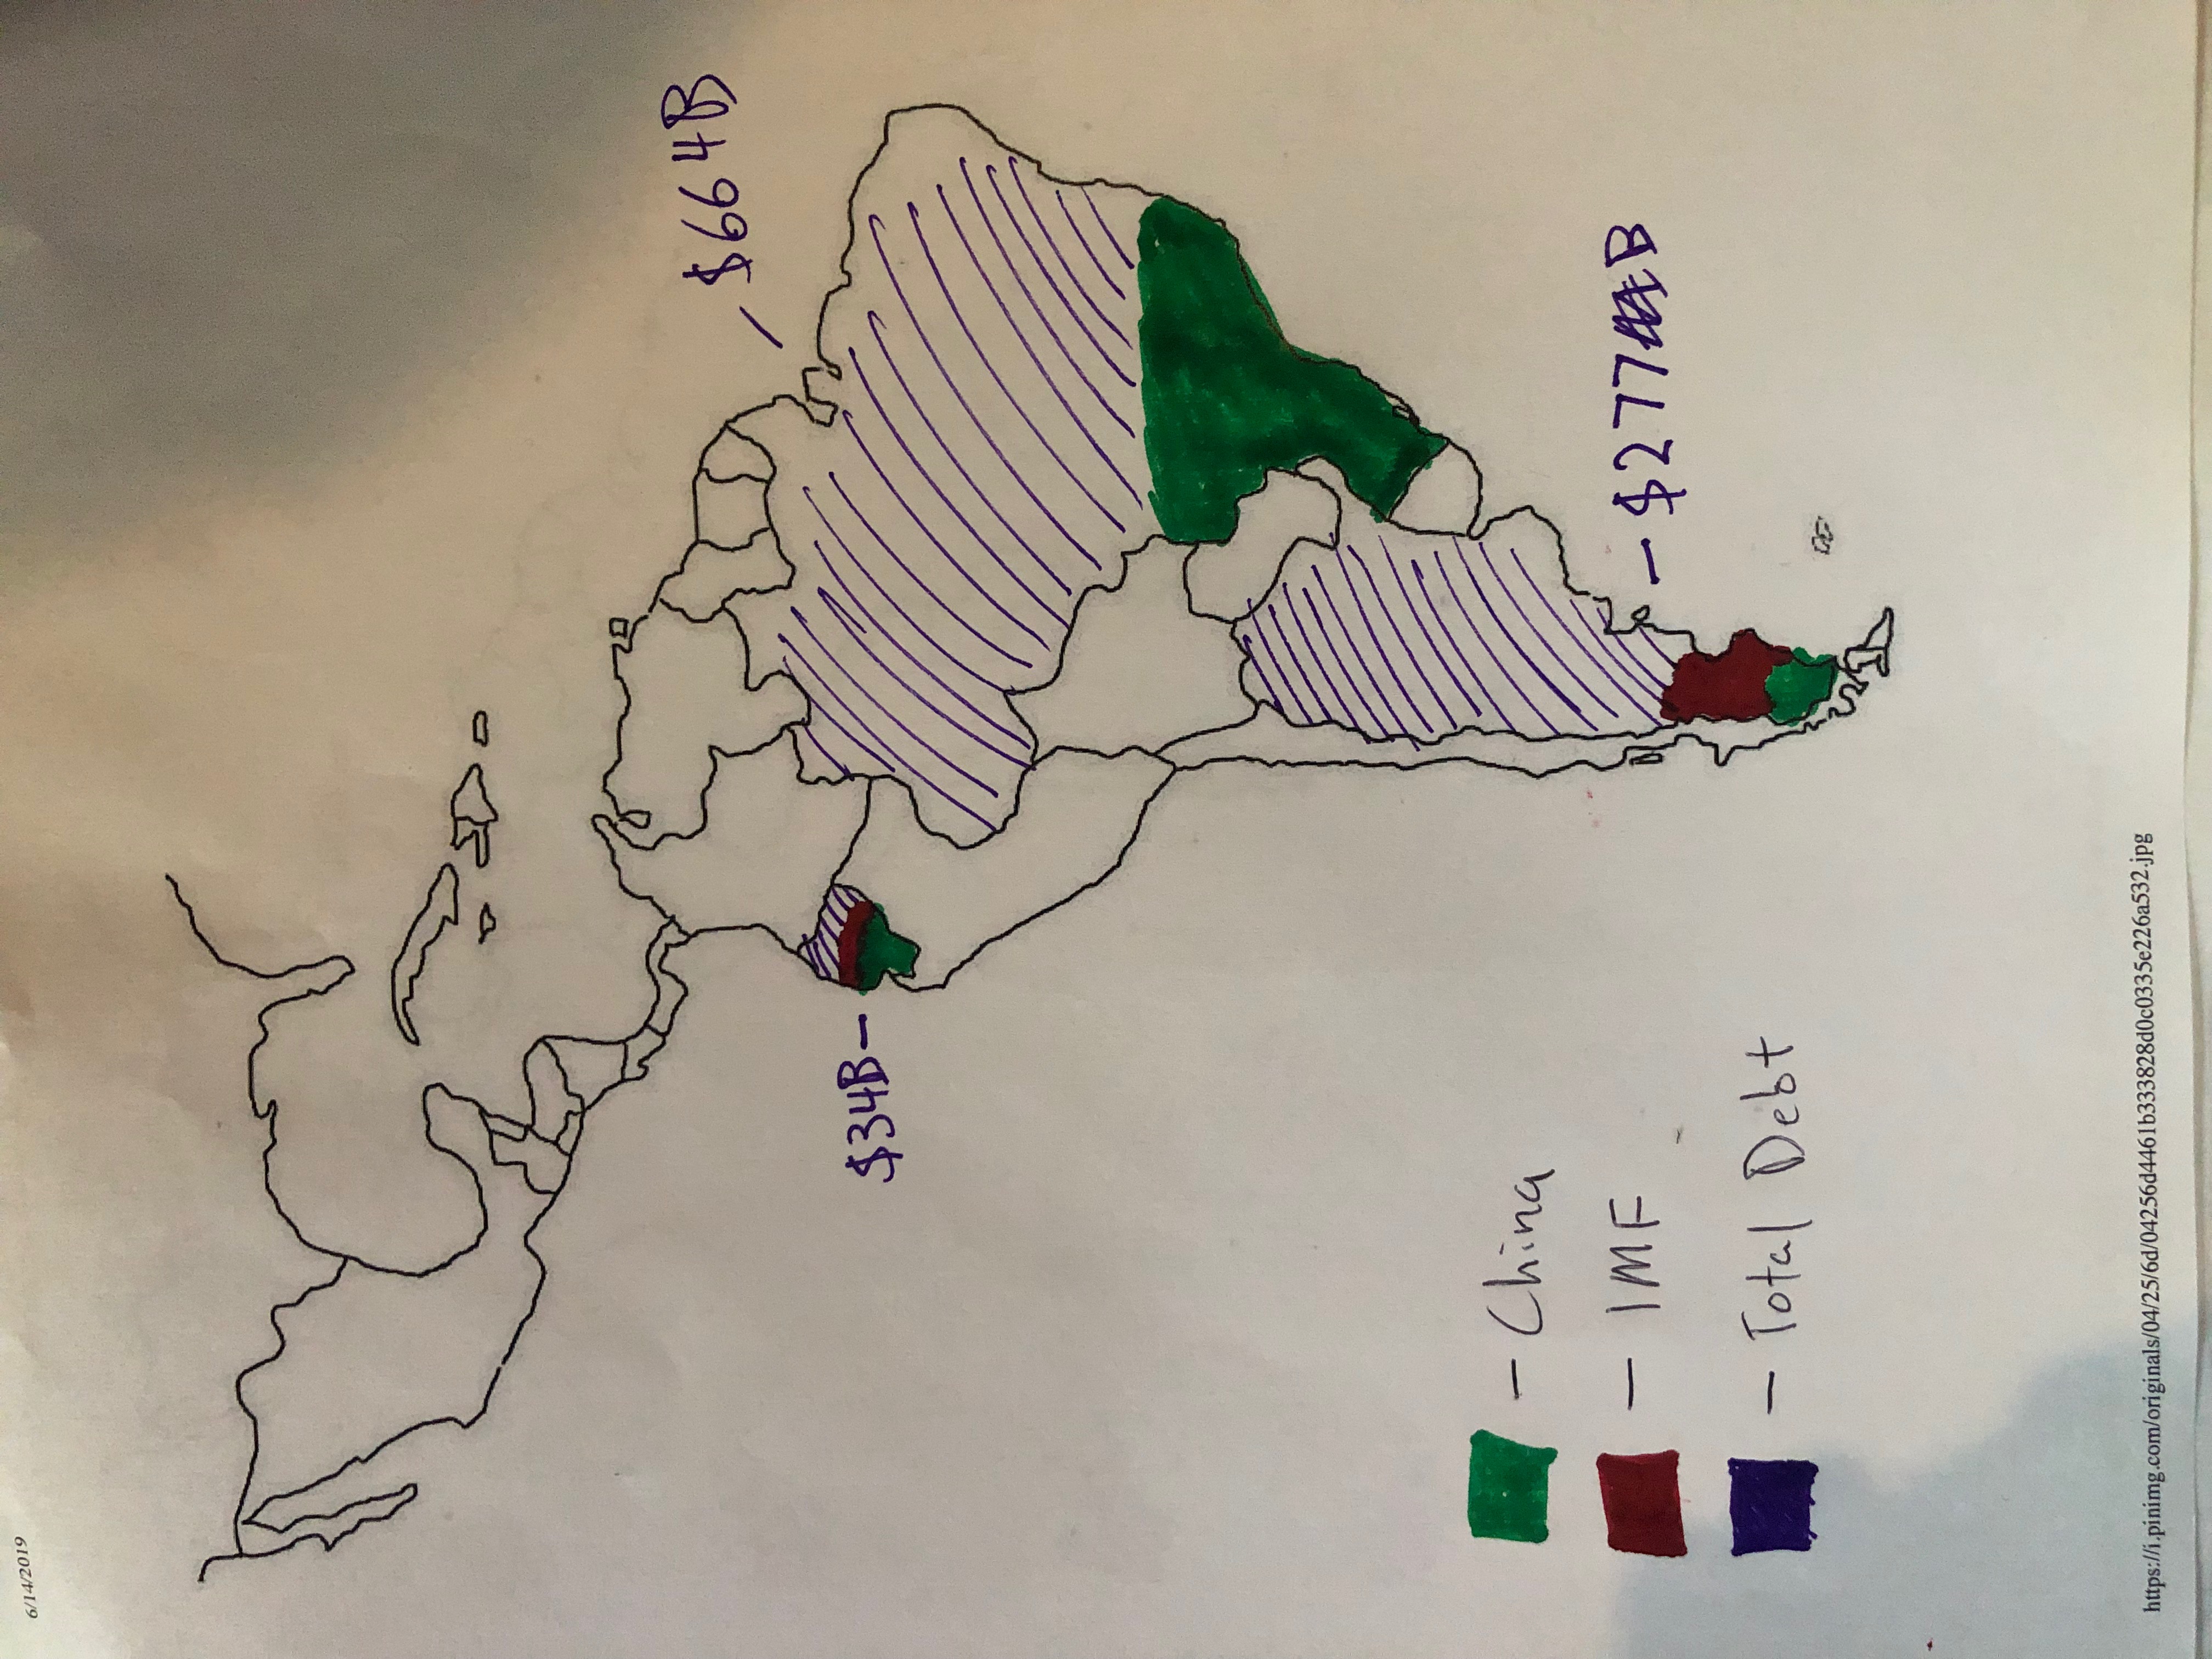 6/14/2019
$664B
$34B
China
IMF
$277B
Total Debt
https://i.pinimg.com/originals/04/25/6d/04256d4461b333828d0c0335e226a532.jpg